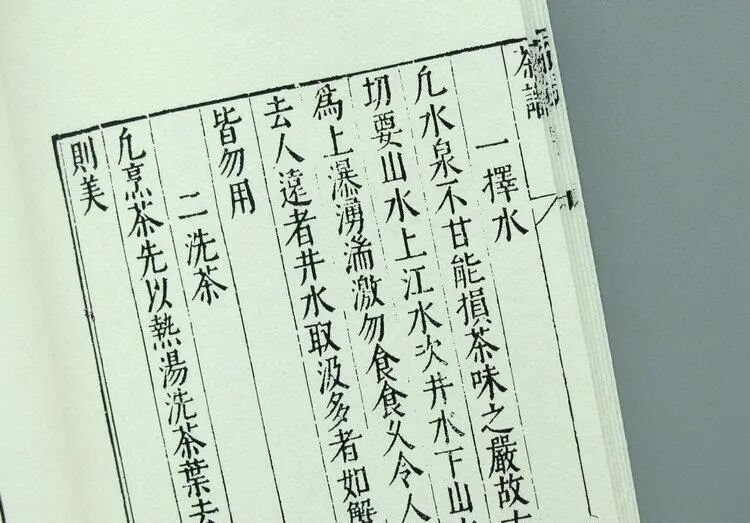 茶譜
一擇水
凡水泉不甘能損茶味之嚴故
切要山水上江水次井水下山水
爲上瀑湧湍激勿食食久令人
去人遠者井水取汲多者如
皆勿用
二洗茶
凡烹茶先以熱湯洗茶葉去
則美